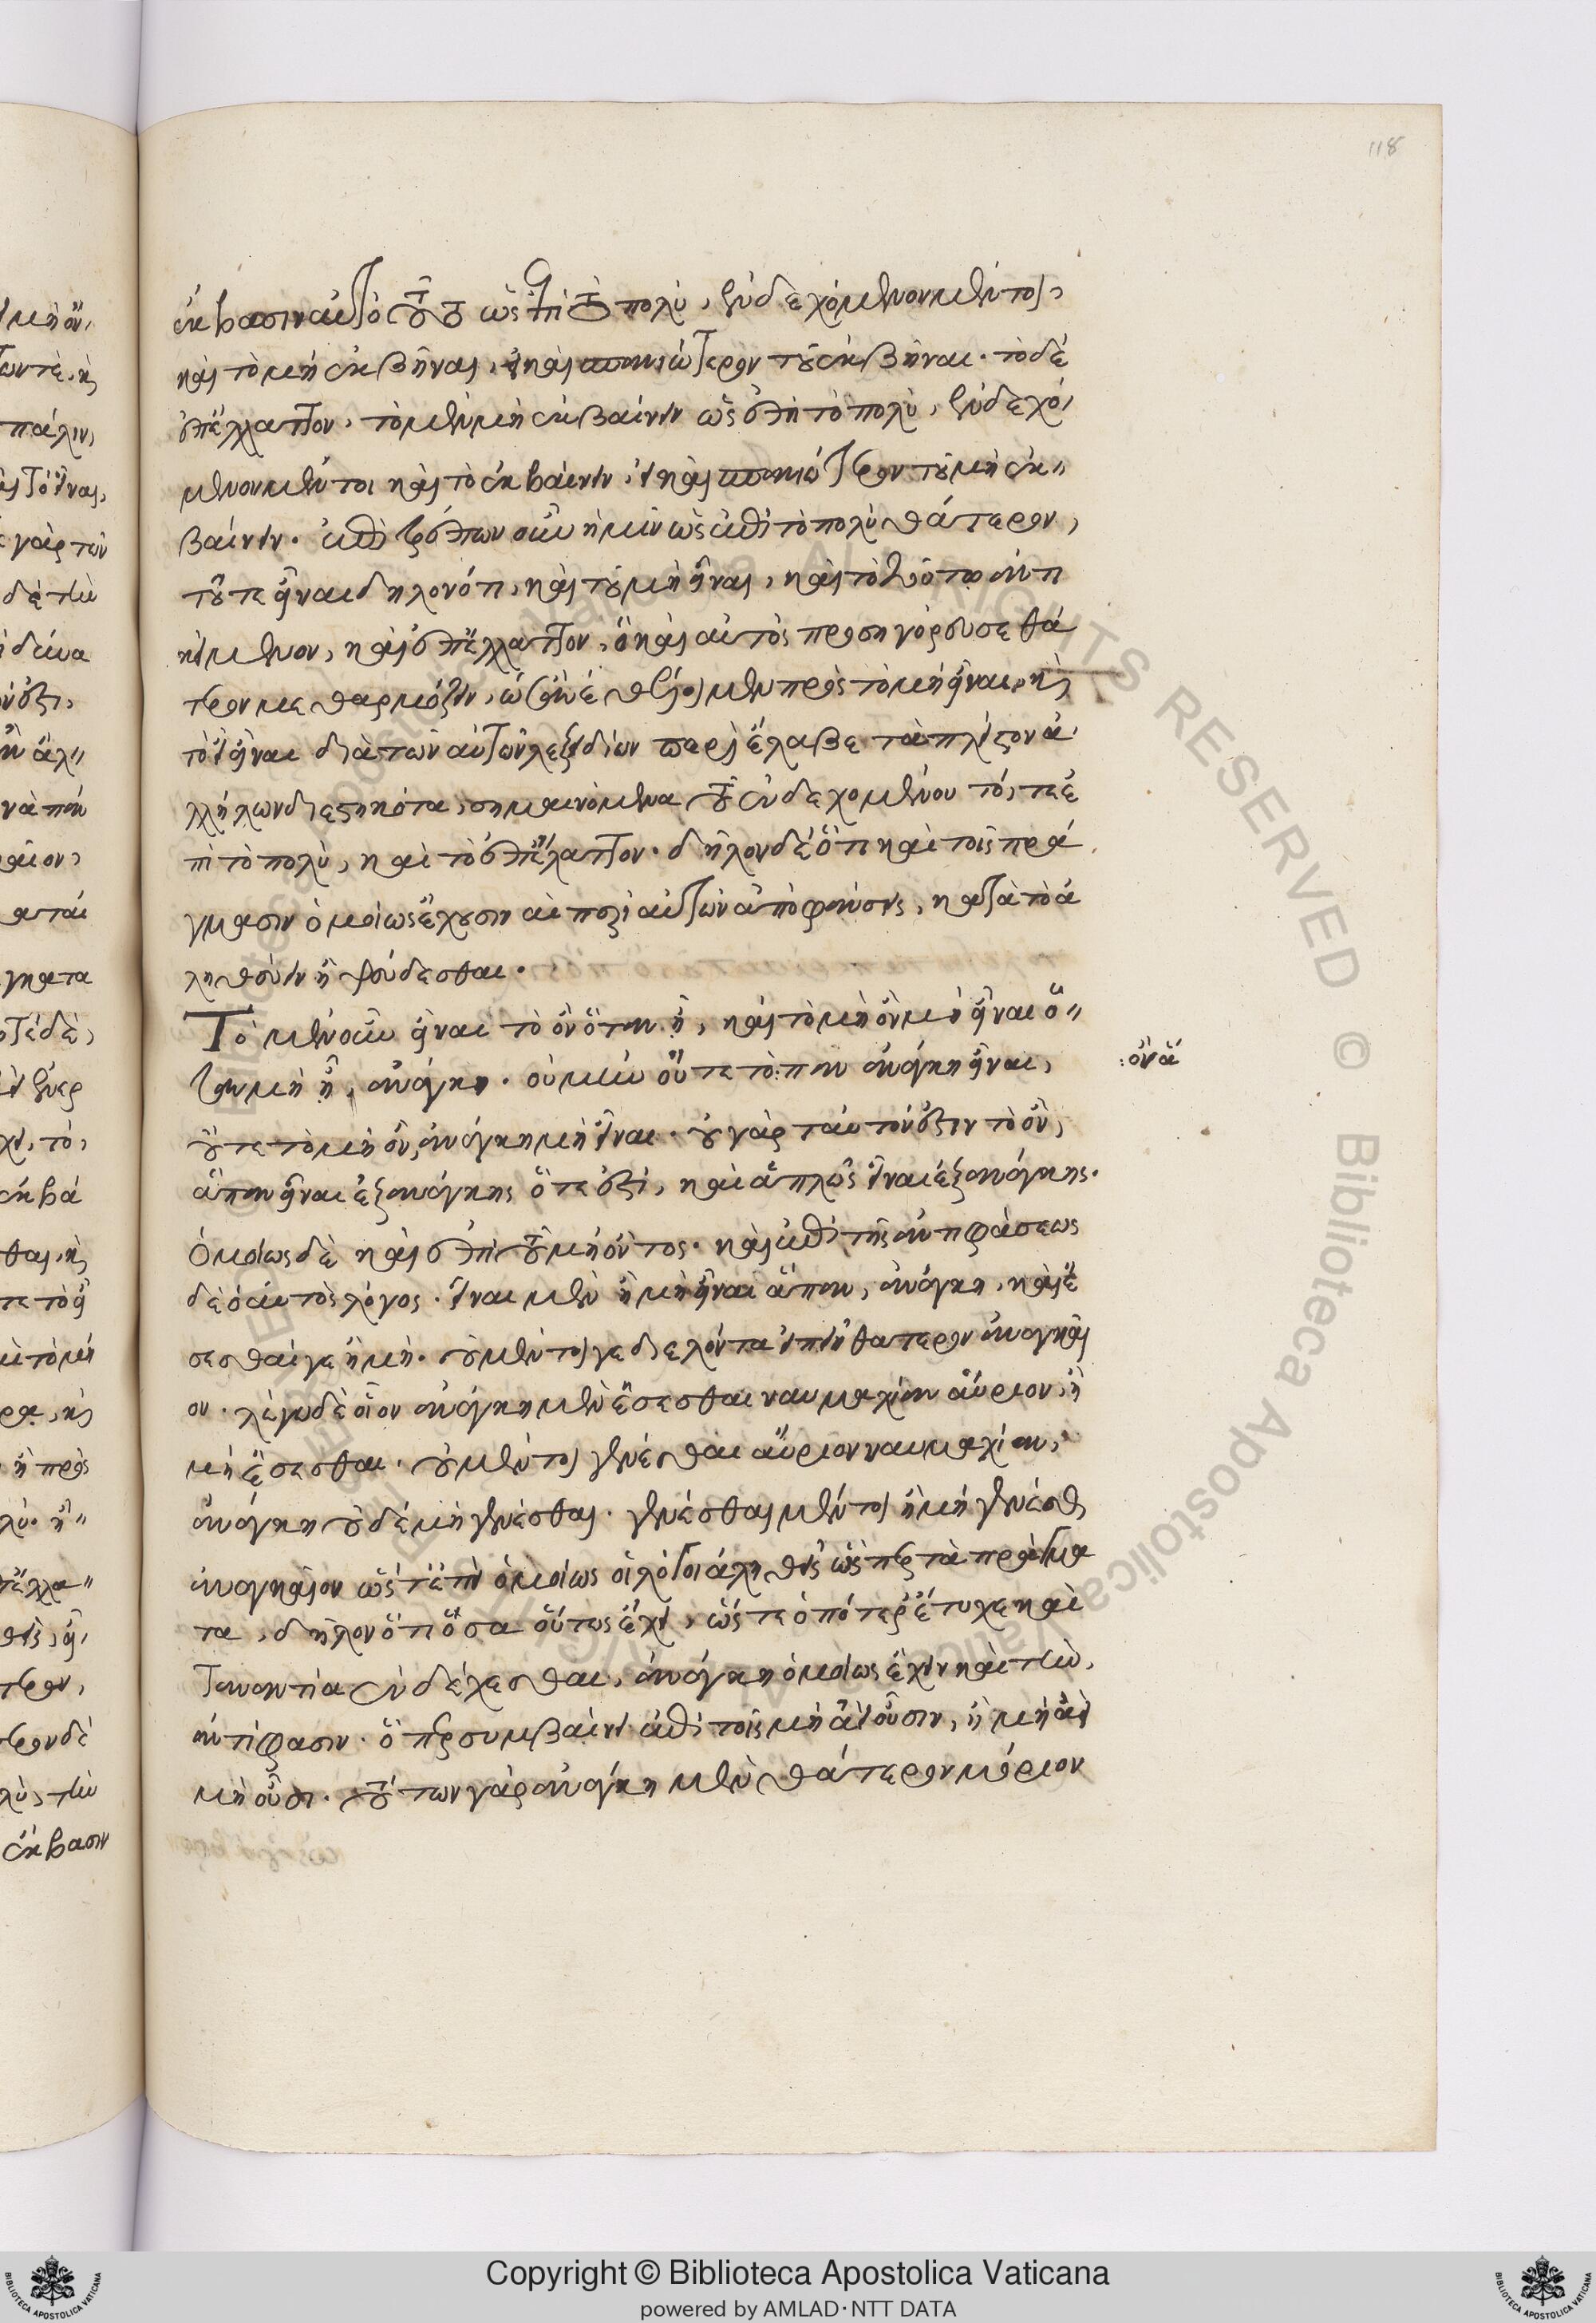 118
ἔκβασιν αὐτὸ τοῦτο ὡς ἐπὶ τὸ πολὺ, ἐνδεχόμενον μέντοι,
καὶ τὸ μὴ ἐκβῆναι, εἰ καὶ σπανιώτερον τοῦ ἐκβῆναι. τὸ δὲ
ἐπέλλαττον, τὸ μὲν μὴ ἐκβαίνειν ὡς ἐπὶ τὸ πολὺ, ἐνδεχό,
μενον μέντοι καὶ τὸ ἐκβαίνειν, εἰ καὶ σπανιώτερον τοῦ μὴ ἐκ"
βαίνειν.
τοῦ τε εἶναι δηλονότι, καὶ τοῦ μὴ εἶναι, καὶ τὸ
κείμενον, καὶ ἐπέλλαττον, ὃ καὶ αὐτὸς προσηγόρευσε θά
τερον μεθαρμόζειν, πρὸς τὸ μὴ εἶναι, καὶ
τὸ εἶναι διὰ τῶν αὐτῶν λεξειδίων παρέλαβε τὰ πλεῖστον ἀ,
λλήλων διεστηκότα, σημαινόμενα τοῦ ἐνδεχομένου τό, τε ἐ
πὶ τὸ πολὺ, καὶ τὸ ἐπέλαττον. δῆλον δὲ ὅτι καὶ τοῖς πρά
γμασιν ὁμοίως ἔχουσιν αἱ περὶ αὐτῶν ἀποφάνσεις, κατὰ τὸ ἀ
ληθεύειν ἢ ψεύδεσθαι.
Τὸ μὲν οὖν εἶναι τὸ ὂν ὅταν ᾖ, καὶ τὸ μὴ ὂν μὴ εἶναι ὅ"
ταν μὴ ᾖ, ἀνάγκη. οὐ μὴν οὔτε τὸ: παν ἀνάγκη εἶναι,
:ὂν ἅ
οὔτε τὸ μὴ ὂν, ἀνάγκη μὴ εἶναι. οὐ γὰρ ταυτόν ἐστιν τὸ ὂν,
ἅπαν εἶναι ἐξ ἀνάγκης ὅτε ἐστὶ, καὶ ἁπλῶς εἶναι ἐξ ἀνάγκης.
ὁμοίως δὲ καὶ ἐπὶ τοῦ μὴ ὄντος. καὶ ἐπὶ τῆς ἀντιφάσεως
δὲ ὁ αὐτὸς λόγος. εἶναι μὲν ἢ μὴ εἶναι ἅπαν, ἀνάγκη, καὶ ἔ
σεσθαί γε ἢ μή. οὐ μέντοι γε διελόντα εἰπεῖν θάτερον ἀναγκαῖ
ον. λέγω δὲ οἷον ἀνάγκη μὲν ἔσεσθαι ναυμαχίαν αὔριον, ἢ
μὴ ἔσεσθαι. οὐ μέντοι γενέσθαι αὔριον ναυμαχίαν,
ἀνάγκη οὐδὲ μὴ γενέσθαι. γενέσθαι μέντοι ἢ μὴ γενέσθαι
ἀναγκαῖον ὥστ' ἐπεὶ ὁμοίως οἱ λόγοι ἀληθεῖς ὥσπερ τὰ πράγμα
τα, δῆλον ὅτι ὅσα οὕτως ἔχει, ὥστε ὁπότερ' ἔτυχε καὶ
τἀναντία ἐνδέχεσθαι, ἀνάγκη ὁμοίως ἔχειν καὶ τὴν,
ἀντίφασιν. ὅπερ συμβαίνει ἐπὶ τοῖς μὴ ἀεὶ οὖσιν, ἢ μὴ ἀεὶ
μὴ οὖσι. τούτων γὰρ ἀνάγκη μὲν θάτερον μόριον
Copyright © Biblioteca Apostolica Vaticana
powered by AMLAD·NTT DATA